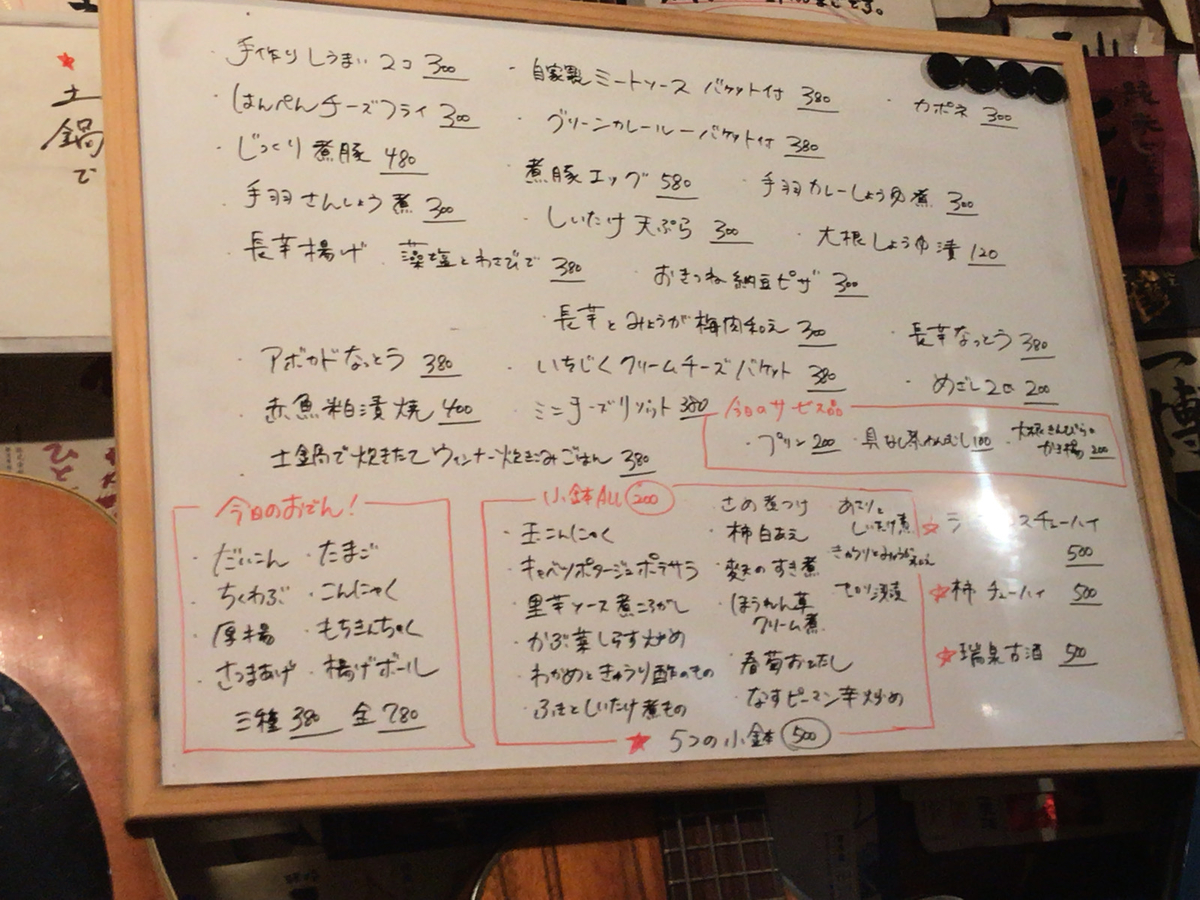 手作りしうまい 2コ 300
はんぺんチーズフライ 300
じっくり煮豚 480
手羽さんしょう煮 300
長芋揚げ 藻塩とわさびで 380
自家製ミートソース バケット付 380
グリーンカレールーバケット付 380
煮豚エッグ 580
しいたけ天ぷら 300
おきつね納豆ピザ 300
長芋とみょうが梅肉和え 300
カポネ 300
手羽カレーしょうゆ煮 300
大根しょうゆ漬 120
長芋なっとう 380
めざし2コ 200
アボカドなっとう 380
いちじくクリームチーズバケット 380
赤魚粕漬焼 400
ミニチーズリゾット 380
土鍋で炊きたてウィンナー炊きこみごはん 380
今日のサービス品
プリン 200
具なし茶わんむし 100
大根きんぴらの
かき揚 200
今日のおでん!
だいこん
たまご
ちくわぶ
こんにゃく
厚揚
もちきんちゃく
さつまあげ
揚げボール
三種 380 全 780
小鉢All 200
玉こんにゃく
キャベツポタージュポテサラ
里芋ソース煮ころがし
かぶ菜しらす炒め
わかめときゅうり酢のもの
ふきとしいたけ煮もの
さめ煮つけ
柿白あえ
麸のすき煮
ほうれん草
クリーム煮
春菊おひたし
なすピーマン辛炒め
あさりと
しいたけ煮
きゅうりとみょうが和え
セロリ浅漬
★5つの小鉢 500
スチューハイ
500
★柿チューハイ 500
★瑞泉古酒 500
★
土
鍋
で